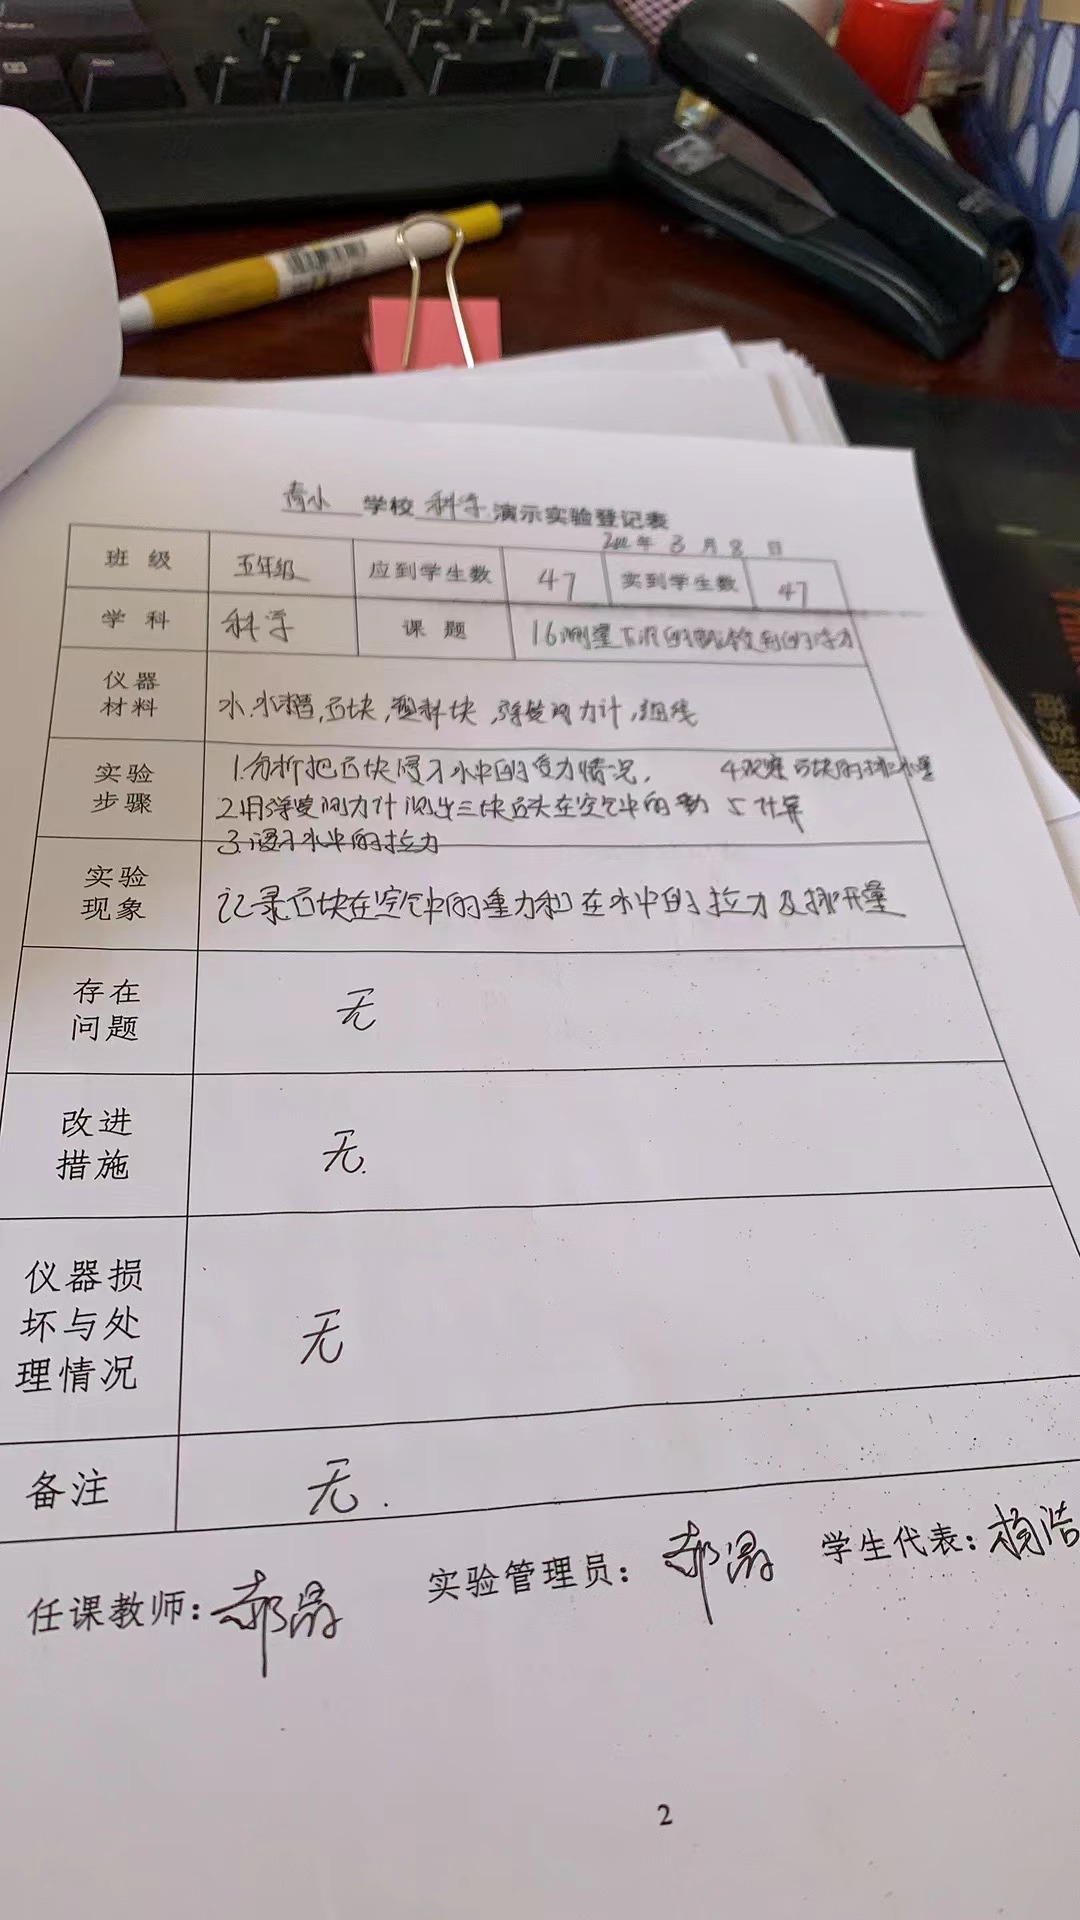 青小 学校 科学 演示实验登记表
年 3 月 8 日
班级 五年级 应到学生数 47 实到学生数 47
学科 科学 课题 16测量下沉的物体受到的浮力
仪器
材料
水.水槽,石块,塑料块,弹簧测力计,细线
实验
步骤
1.分析把石块浸入水中的受力情况. 4观察石块的排水量
2.用弹簧测力计测出三块石头在空气中的 5计算
3.浸入水中的拉力
实验
现象
记录石块在空气中的重力和在水中的拉力及排开量
存在
问题
无
改进
措施
无.
仪器损
坏与处
理情况
无
备注 无.
任课教师:郝晶 实验管理员:郝晶 学生代表:杨浩
2